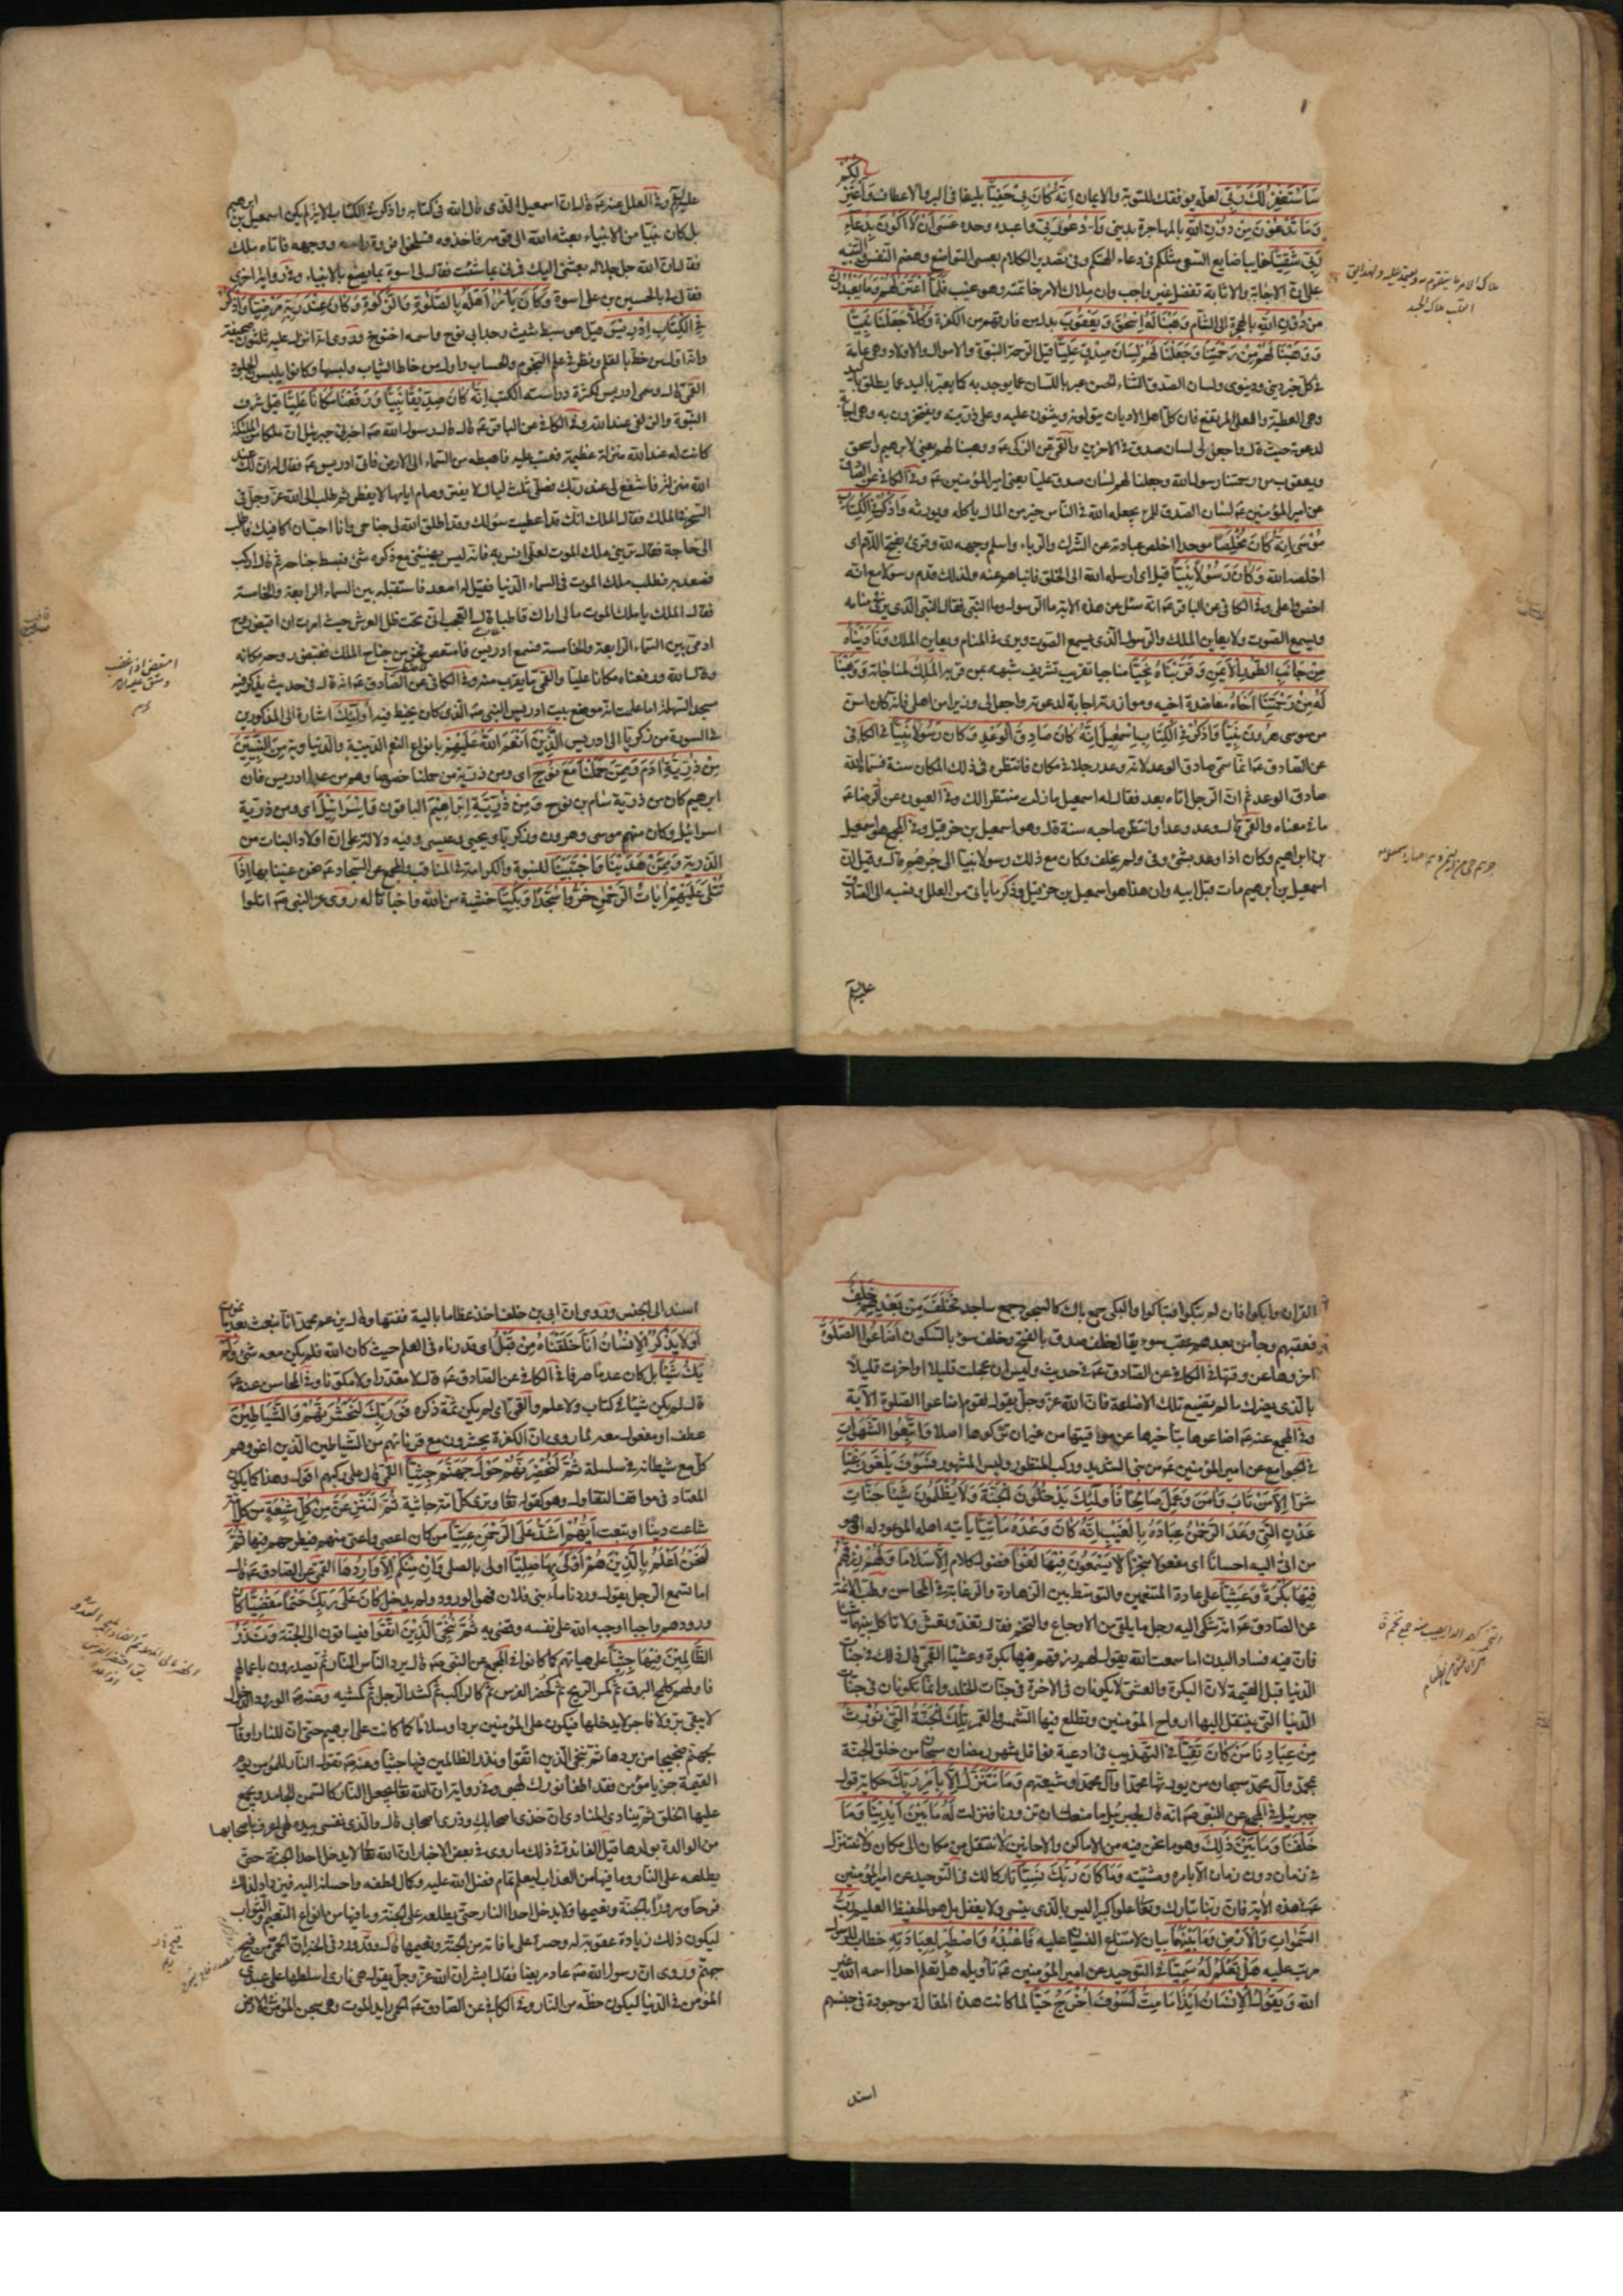 سَاَسْتَغْفِرُ لَكَ رَبّى لعلّه يوفقك للتوبة والايمان اِنَّهُ كَانَ بِى حَفِيًّا بليغا فى البر والالطاف وَاَعْتَزِلُكُمْ
وَمَا تَدْعُوْنَ مِنْ دُوْنِ اللّهِ بالمهاجرة بدينى وَاَدْعُوا رَبّى واعبده وحده عَسَى اَنْ لَا اَكُوْنَ بِدُعَاءِ
رَبِّى شَقِيًّا خايبا ضايع السعى مثلكم فى دعاء الهتكم وفى تصدير الكلام بعسى التواضع وهضم النفس والتنبيه
على ان الاجابة والاثابة تفضل غير واجب وان ملاك الامر خاتمته وهو غيب فَلَمَّا اعْتَزَلَهُمْ وَمَا يَعْبُدُوْنَ
مِنْ دُوْنِ اللّهِ بالهجرة الى الشام وَهَبْنَا لَهُ اِسْحٰقَ وَيَعْقُوْبَ بدل من فارقهم من الكفرة وَكُلًّا جَعَلْنَا نَبِيًّا
وَوَهَبْنَا لَهُمْ مِنْ رَحْمَتِنَا وَجَعَلْنَا لَهُمْ لِسَانَ صِدْقٍ عَلِيًّا قيل الرحمة النبوة والاموال والاولاد وهى عامة
فى كل خير دينى ودنيوى ولسان الصدق الثناء الحسن عبر باللسان عما يوجد به كما يعبر باليد عما يطلق باليد
وهى العطية والعلى المرتفع فان كل اهل الاديان يتولونه ويثنون عليه وعلى ذريته ويفتخرون به وهى اجابة
لدعوته حيث قال واجعل لى لسان صدق فى الاخرين والقمى عن الزكى ع ووهبنا لهم يعنى لابرهيم واسحق
ويعقوب من رحمتنا رسول الله وجعلنا لهم لسان صدق عليا يعنى امير المؤمنين ع وفى الكافى عن الصادق
عن امير المؤمنين ع لسان الصدق للمرء يجعله الله فى الناس خير من المال ياكله ويورثه وَاذْكُرْ فِى الْكِتَابِ
مُوْسَى اِنَّهُ كَانَ مُخْلِصًا موحدا اخلص عبادته عن الشرك والرياء واسلم وجهه لله وقرئ بفتح اللام اى
اخلصه الله وَكَانَ رَسُوْلًا نَبِيًّا قيل اى ارسله الله الى الخلق فانباهم عنه ولذلك قدم رسولا مع انه
اخص واعلى وفى الكافى عن الباقر ع انه سئل عن هذه الاية ما الرسول وما النبى فقال النبى الذى يرى فى منامه
ويسمع الصوت ولا يعاين الملك والرسول الذى يسمع الصوت ويرى فى المنام ويعاين الملك وَنَادَيْنَاهُ
مِنْ جَانِبِ الطُّوْرِ الْاَيْمَنِ وَقَرَّبْنَاهُ نَجِيًّا مناجيا تقريب تشريف شبهه بمن قربه الملك لمناجاته وَوَهَبْنَا
لَهُ مِنْ رَحْمَتِنَا اَخَاهُ معاضدة اخيه وموازرته اجابة لدعوته واجعل لى وزيرا من اهلى فانه كان اسن
من موسى هَرُوْنَ نَبِيًّا وَاذْكُرْ فِى الْكِتَابِ اِسْمٰعِيْلَ اِنَّهُ كَانَ صَادِقَ الْوَعْدِ وَكَانَ رَسُوْلًا نَبِيًّا فى الكافى
عن الصادق ع انما سمى صادق الوعد لانه وعد رجلا فى مكان فانتظره فى ذلك المكان سنة فسماه الله
صادق الوعد ثم ان الرجل اتاه بعد فقال له اسمعيل ما زلت منتظرا لك وفى العيون عن الرضا ع
ما فى معناه والقمى قال وعد وعدا وانتظر صاحبه سنة قال وهو اسمعيل بن حزقيل وفى المجمع هو اسمعيل
بن ابراهيم وكان اذا وعد بشئ وفى ولم يخلف وكان مع ذلك رسولا نبيا الى جرهم قال وقيل ان
اسمعيل بن ابرهيم مات قبل ابيه وان هذا هو اسمعيل بن حزقيل وذكر ما ياتى من العلل ونسبه الى الصادق
عليه السلم
عليه السلم وفى العلل عنه ع قال ان اسمعيل الذى قال الله فى كتابه واذكر فى الكتاب الاية لم يكن اسمعيل بن ابرهيم
بل كان نبيا من الانبياء بعثه الله الى قومه فاخذوه فسلخوا فروة راسه ووجهه فاتاه ملك
فقال ان الله جل جلاله بعثنى اليك فمرنى بما شئت فقال لى اسوة بما يصنع بالانبياء وفى رواية اخرى
فقال لى بالحسين بن على اسوة وَكَانَ يَأْمُرُ اَهْلَهُ بِالصَّلٰوةِ وَالزَّكٰوةِ وَكَانَ عِنْدَ رَبِّهِ مَرْضِيًّا وَاذْكُرْ
فِى الْكِتَابِ اِدْرِيْسَ قيل هو سبط شيث وجد ابى نوح واسمه اخنوخ وروى انه انزل عليه ثلثون صحيفة
وانه اول من خط بالقلم ونظر فى علم النجوم والحساب واول من خاط الثياب ولبسها وكانوا يلبسون الجلود
القمى قال وسمى ادريس لكثرة دراسته الكتب اِنَّهُ كَانَ صِدِّيْقًا نَبِيًّا وَرَفَعْنَاهُ مَكَانًا عَلِيًّا قيل شرف
النبوة والزلفى عند الله وفى الكافى عن الباقر ع قال قال رسول الله ص اخبرنى جبرئيل ان ملكا من الملئكة
كانت له عند الله منزلة عظيمة فعتب عليه فاهبطه من السماء الى الارض فاتى ادريس ع فقال له ان لك عند
الله منزلة فاشفع لى عند ربك فصلى ثلث ليال لا يفتر وصام ايامها لا يفطر ثم طلب الى الله عز وجل فى
السحر فى الملك فقال الملك انك قد اعطيت سؤلك وقد اطلق الله لى جناحى وانا احب ان اكافيك فاطلب
الى حاجة فقال ترينى ملك الموت لعلى انس به فانه ليس يهنئنى مع ذكره شئ فبسط جناحه ثم قال اركب
فصعد به فطلب ملك الموت فى السماء الدنيا فقيل له اصعد فاستقبله بين السماء الرابعة والخامسة
فقال الملك يا ملك الموت ما لى اراك قاطبا قال العجب انى تحت ظل العرش حيث امرت ان اقبض روح
ادمى بين السماء الرابعة والخامسة فسمع ادريس فامتعض فخر من جناح الملك فقبض روحه مكانه
وقال الله ورفعناه مكانا عليا والقمى ما يقرب منه وفى الكافى عن الصادق ع انه قال فى حديث يذكر فيه
مسجد السهلة اما علمت انه موضع بيت ادريس النبى ص الذى كان يخيط فيه اُولٰئِكَ اشارة الى المذكورين
فى السورة من زكريا الى ادريس الَّذِيْنَ اَنْعَمَ اللّهُ عَلَيْهِمْ بانواع النعم الدينية والدنياوية مِنَ النَّبِيّيْنَ
مِنْ ذُرِّيَّةِ اٰدَمَ وَمِمَّنْ حَمَلْنَا مَعَ نُوْحٍ اى ومن ذرية من حملنا خصوصا وهم من عدا ادريس فان
ابرهيم كان من ذرية سام بن نوح وَمِنْ ذُرِّيَّةِ اِبْرَاهِيْمَ الباقون وَاِسْرَائِيْلَ اى ومن ذرية
اسرائيل وكان منهم موسى وهرون وزكريا ويحيى وعيسى وفيه دلالة على ان اولاد البنات من
الذرية وَمِمَّنْ هَدَيْنَا وَاجْتَبَيْنَا للنبوة والكرامة فى المناقب والمجمع عن السجاد ع نحن عنينا بها اِذَا
تُتْلَى عَلَيْهِمْ اٰيَاتُ الرَّحْمٰنِ خَرُّوْا سُجَّدًا وَبُكِيًّا خشية من الله واخباتا له روى عن النبى ص اتلوا
القران وابكوا فان لم تبكوا فتباكوا والبكى جمع باك كالسجود جمع ساجد فَخَلَفَ مِنْ بَعْدِهِمْ خَلْفٌ
فعقبهم وجاء من بعدهم عقب سوء يقال خلف صدق بالفتح وخلف سوء بالسكون اَضَاعُوا الصَّلٰوةَ
اخروها عن وقتها فى الكافى عن الصادق ع فى حديث وليس ان عجلت قليلا او اخرت قليلا
بالذى يضرك ما لم تضيع تلك الاضاعة فان الله عز وجل يقول لقوم اضاعوا الصلوة الآية
وفى المجمع عنه ع اضاعوها بتاخيرها عن مواقيتها من غير ان تركوها اصلا وَاتَّبَعُوا الشَّهَوَاتِ
فى الجوامع عن امير المؤمنين ع من بنى الشديد وركب المنظور ولبس المشهور فَسَوْفَ يَلْقَوْنَ غَيًّا
شرا اِلَّا مَنْ تَابَ وَاٰمَنَ وَعَمِلَ صَالِحًا فَاُولٰئِكَ يَدْخُلُوْنَ الْجَنَّةَ وَلَا يُظْلَمُوْنَ شَيْئًا جَنَّاتِ
عَدْنٍ الَّتِى وَعَدَ الرَّحْمٰنُ عِبَادَهُ بِالْغَيْبِ اِنَّهُ كَانَ وَعْدُهُ مَأْتِيًّا ياتيه اهله الموعود له او هو
من اتى اليه احسانا اى مفعولا منجزا لَا يَسْمَعُوْنَ فِيْهَا لَغْوًا فضول كلام اِلَّا سَلَامًا وَلَهُمْ رِزْقُهُمْ
فِيْهَا بُكْرَةً وَعَشِيًّا على عادة المتنعمين والتوسط بين الزهادة والرغابة فى المحاسن وطب الائمة
عن الصادق ع انه شكى اليه رجل ما يلقى من الاوجاع والتخم فقال تغد وتعش ولا تاكل بينهما شيئا
فان فيه فساد البدن اما سمعت الله يقول لهم رزقهم فيها بكرة وعشيا القمى قال ذلك فى جنات
الدنيا قبل القيمة لان البكرة والعشى لا يكونان فى الاخرة فى جنات الخلد وانما يكونان فى جنات
الدنيا التى ينتقل اليها ارواح المؤمنين وتطلع فيها الشمس والقمر تِلْكَ الْجَنَّةُ الَّتِى نُوْرِثُ
مِنْ عِبَادِنَا مَنْ كَانَ تَقِيًّا فى التهذيب فى ادعية نوافل شهر رمضان سبحان من خلق الجنة
لمحمد وآل محمد سبحان من يورثها محمدا وآل محمد وشيعتهم وَمَا نَتَنَزَّلُ اِلَّا بِاَمْرِ رَبِّكَ حكاية قول
جبرئيل فى المجمع عن النبى ص انه قال لجبرئيل ما منعك ان تزورنا فنزلت لَهُ مَا بَيْنَ اَيْدِيْنَا وَمَا
خَلْفَنَا وَمَا بَيْنَ ذٰلِكَ وهو ما نحن فيه من الاماكن والاحايين لا ننتقل من مكان الى مكان ولا نتنزل
فى زمان دون زمان الا بامره ومشيته وَمَا كَانَ رَبُّكَ نَسِيًّا تاركا لك فى التوحيد عن امير المؤمنين
ع فى هذه الآية فان ربنا تبارك وتعالى علوا كبيرا ليس بالذى ينسى ولا يغفل بل هو الحفيظ العليم رَبُّ
السَّمٰوَاتِ وَالْاَرْضِ وَمَا بَيْنَهُمَا بيان لامتناع النسيان عليه فَاعْبُدْهُ وَاصْطَبِرْ لِعِبَادَتِهِ خطاب للرسول
مرتب عليه هَلْ تَعْلَمُ لَهُ سَمِيًّا فى التوحيد عن امير المؤمنين ع تاويله هل تعلم احدا اسمه الله غير
الله وَيَقُوْلُ الْاِنْسَانُ ءَاِذَا مَا مِتُّ لَسَوْفَ اُخْرَجُ حَيًّا لما كانت هذه المقالة موجودة فى جنسهم
اسند
اسند الى الجنس وروى ان ابى بن خلف اخذ عظاما بالية ففتها وقال يزعم محمد انا نبعث بعد ما نموت
اَوَلَا يَذْكُرُ الْاِنْسَانُ اَنَّا خَلَقْنَاهُ مِنْ قَبْلُ اى قدرناه فى العلم حيث كان الله فلم يكن معه شئ وَلَمْ
يَكُ شَيْئًا بل كان عدما صرفا فى الكافى عن الصادق ع قال لا مقدرا ولا مكونا وفى المحاسن عنه ع
قال لم يكن شيئا فى كتاب ولا علم والقمى اى لم يكن ثمة ذكره فَوَرَبِّكَ لَنَحْشُرَنَّهُمْ وَالشَّيَاطِيْنَ
عطف او مفعول معه لما روى ان الكفرة يحشرون مع قرنائهم من الشياطين الذين اغووهم
كل مع شيطانه فى سلسلة ثُمَّ لَنُحْضِرَنَّهُمْ حَوْلَ جَهَنَّمَ جِثِيًّا القمى قال على ركبهم اقول وهذا كما يكون
المعتاد فى مواقف التقاول وهو كقوله تعالى وترى كل امة جاثية ثُمَّ لَنَنْزِعَنَّ مِنْ كُلِّ شِيْعَةٍ من كل امة
شاعت دينا او تبعت اَيُّهُمْ اَشَدُّ عَلَى الرَّحْمٰنِ عِتِيًّا من كان اعصى واعتى منهم فيطرحهم فيها ثُمَّ
لَنَحْنُ اَعْلَمُ بِالَّذِيْنَ هُمْ اَوْلَى بِهَا صِلِيًّا اولى بالصلى وَاِنْ مِنْكُمْ اِلَّا وَارِدُهَا القمى عن الصادق ع قال
اما تسمع الرجل يقول وردنا ماء بنى فلان فهو الورود ولم يدخل كَانَ عَلَى رَبِّكَ حَتْمًا مَقْضِيًّا كان
ورودهم واجبا اوجبه الله على نفسه وقضى به ثُمَّ نُنَجِّى الَّذِيْنَ اتَّقَوْا فيساقون الى الجنة وَنَذَرُ
الظَّالِمِيْنَ فِيْهَا جِثِيًّا على هياتهم كما كانوا فى المجمع عن النبى ص قال يرد الناس النار ثم يصدرون باعمالهم
فاولهم كلمع البرق ثم كمر الريح ثم كحضر الفرس ثم كالراكب ثم كشد الرجل ثم كمشيه وعنه ص الورود الدخول
لا يبقى بر ولا فاجر الا يدخلها فيكون على المؤمنين بردا وسلاما كما كانت على ابرهيم حتى ان للنار او قال
لجهنم ضجيجا من بردها ثم ننجى الذين اتقوا ونذر الظالمين فيها جثيا وعنه ص تقول النار للمؤمن يوم
القيمة جز يا مؤمن فقد اطفأ نورك لهبى وفى رواية ان الله تعالى يجعل النار كالسمن الجامد ويجمع
عليها الخلق ثم ينادى المنادى ان خذى اصحابك وذرى اصحابى قال والذى نفسى بيده لهى اعرف باصحابها
من الوالدة بولدها قيل الفائدة فى ذلك ما روى فى بعض الاخبار ان الله تعالى لا يدخل احدا الجنة حتى
يطلعه على النار وما فيها من العذاب ليعلم تمام فضل الله عليه وكمال لطفه واحسانه اليه فيزداد لذلك
فرحا وسرورا بالجنة ونعيمها ولا يدخل احدا النار حتى يطلعه على الجنة وما فيها من انواع النعيم والثواب
ليكون ذلك زيادة عقوبة له وحسرة على ما فاته من الجنة ونعيمها قال وقد ورد فى الخبر ان الحمى من فيح
جهنم وروى ان رسول الله ص عاد مريضا فقال ابشر ان الله عز وجل يقول هى نارى اسلطها على عبدى
المؤمن فى الدنيا ليكون حظه من النار وفى الكافى عن الصادق ع الحمى رايد الموت وهى سجن المؤمن فى الارض